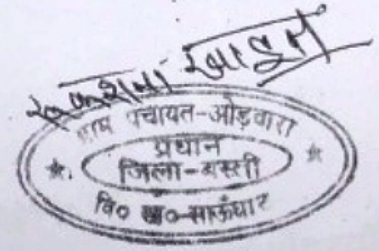 खातून
ग्राम पंचायत-ओड़वारा
प्रधान
जिला-बस्ती
वि० ख०-साऊँघाट